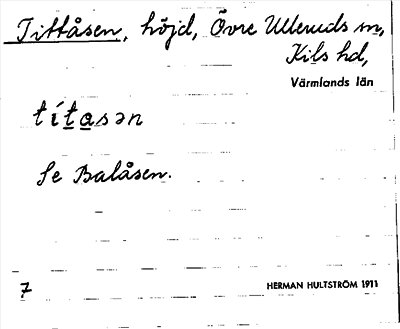 Tittåsen, höjd, Övre Ulleruds sn,
Kils hd,
Värmlands län
títasən
Se Balåsen.
7
HERMAN HULTSTRÖM 1911